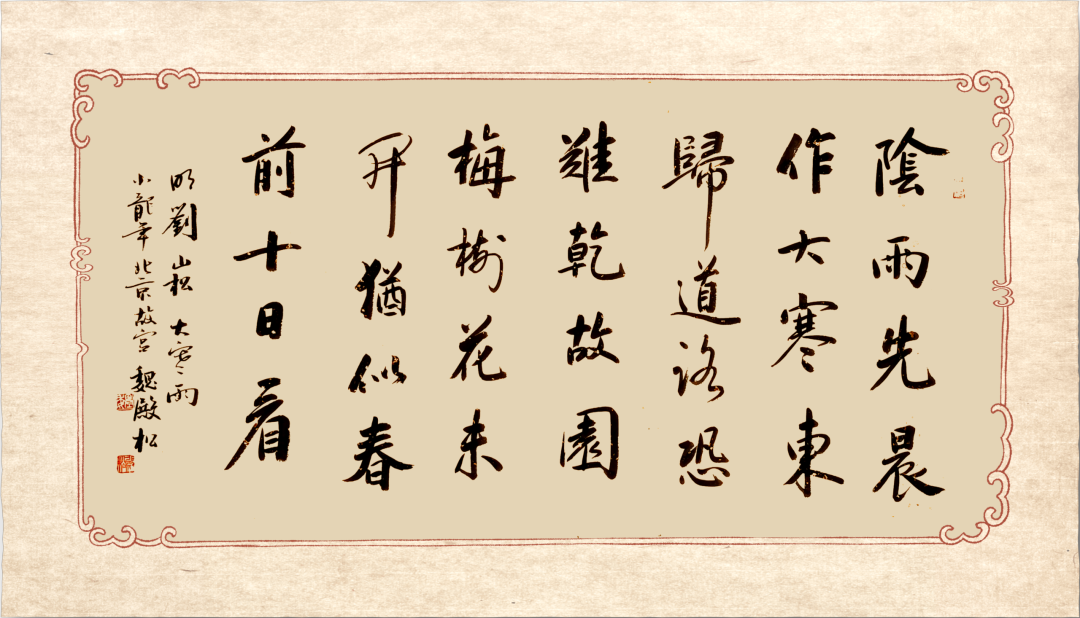 陰雨先晨
作大寒東
歸道路恐
難乾故園
梅樹花未
开猶似春
前十日看
明劉崧大寒雨
小龍年北京故宮魏殿松